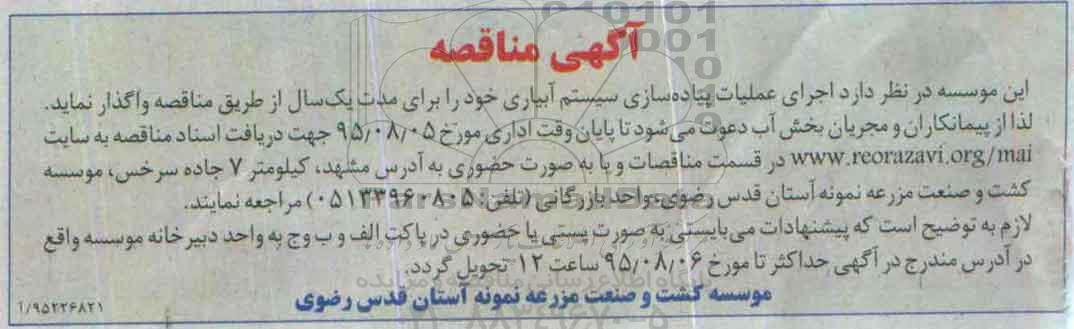 آگهی مناقصه
این موسسه در نظر دارد اجرای عملیات پیاده‌سازی سیستم آبیاری خود را برای مدت یک‌سال از طریق مناقصه واگذار نماید.
لذا از پیمانکاران و مجریان بخش آب دعوت می‌شود تا پایان وقت اداری مورخ ۹۵/۰۸/۰۵ جهت دریافت اسناد مناقصه به سایت
www.reorazavi.org/mai در قسمت مناقصات و یا به صورت حضوری به آدرس مشهد، کیلومتر ۷ جاده سرخس، موسسه
کشت و صنعت مزرعه نمونه آستان قدس رضوی، واحد بازرگانی (تلفن: ۰۵۱۳۳۹۶۰۸۰۵) مراجعه نمایند.
لازم به توضیح است که پیشنهادات می‌بایستی به صورت پستی یا حضوری در پاکت الف و ب و ج به واحد دبیرخانه موسسه واقع
در آدرس مندرج در آگهی حداکثر تا مورخ ۹۵/۰۸/۰۶ ساعت ۱۲ تحویل گردد.
موسسه کشت و صنعت مزرعه نمونه آستان قدس رضوی
۹۵۲۲۶۸۲۱/آ